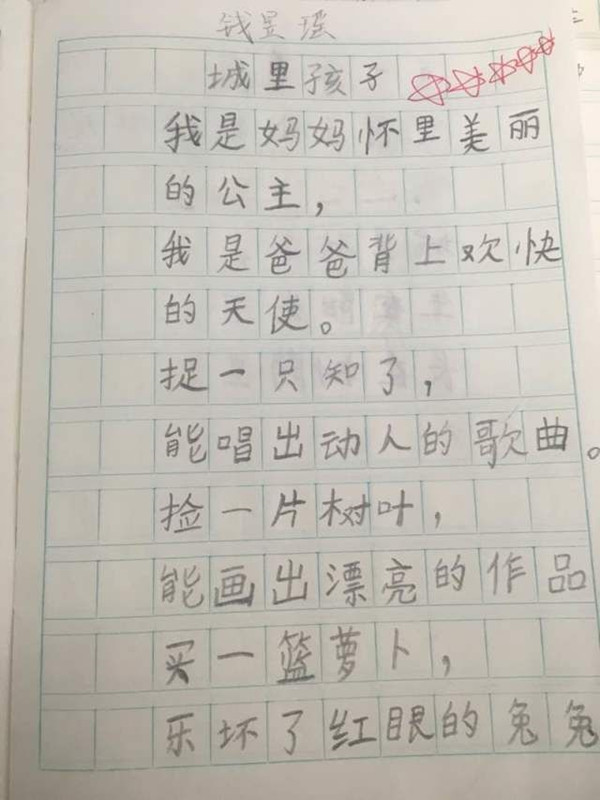 钱昱瑶
城里孩子
我是妈妈怀里美丽
的公主，
我是爸爸背上欢快
的天使。
捉一只知了，
能唱出动人的歌曲。
捡一片树叶，
能画出漂亮的作品
买一篮萝卜，
乐坏了红眼的兔兔